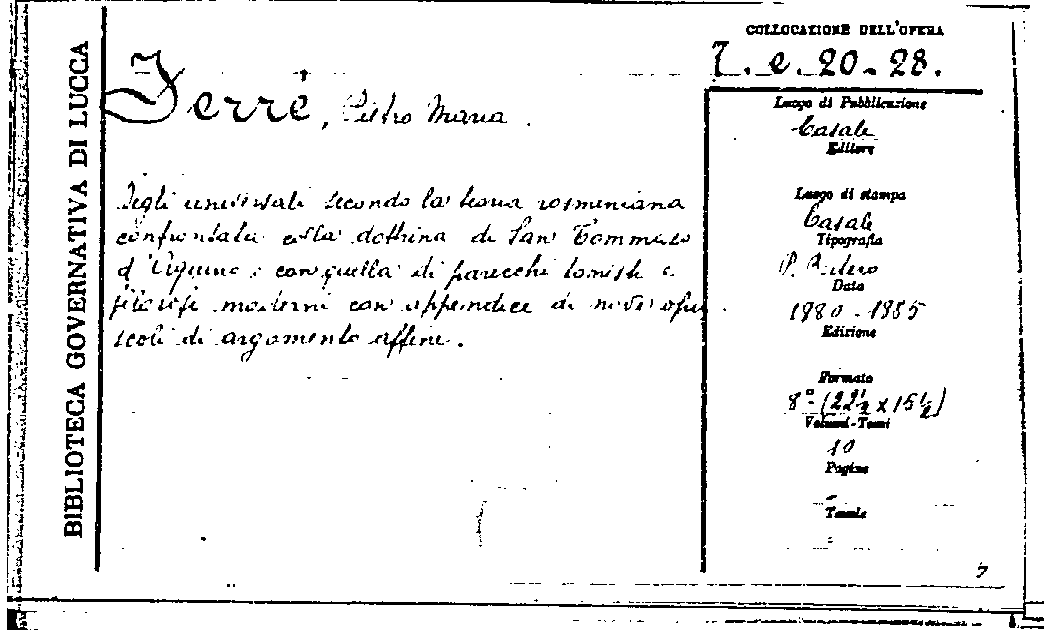 BIBLIOTECA GOVERNATIVA DI LUCCA
COLLOCAZIONE DELL'OPERA
7. e. 20-28.
Ferrè, Pietro Maria.
Degli universali secondo la teoria rosminiana
confrontata colla dottrina di San Tommaso
d'Aquino e con quella di parecchi tomisti e
filosofi moderni con appendice di nove opu-
scoli di argomento affine.
Luogo di Pubblicazione
Casale
Editore
Luogo di stampa
Casale
Tipografia
P.
Data
1880-1885
Edizione
Formato
8º (22½ x 15½)
Volumi-Tomi
10
Pagine
Tavole